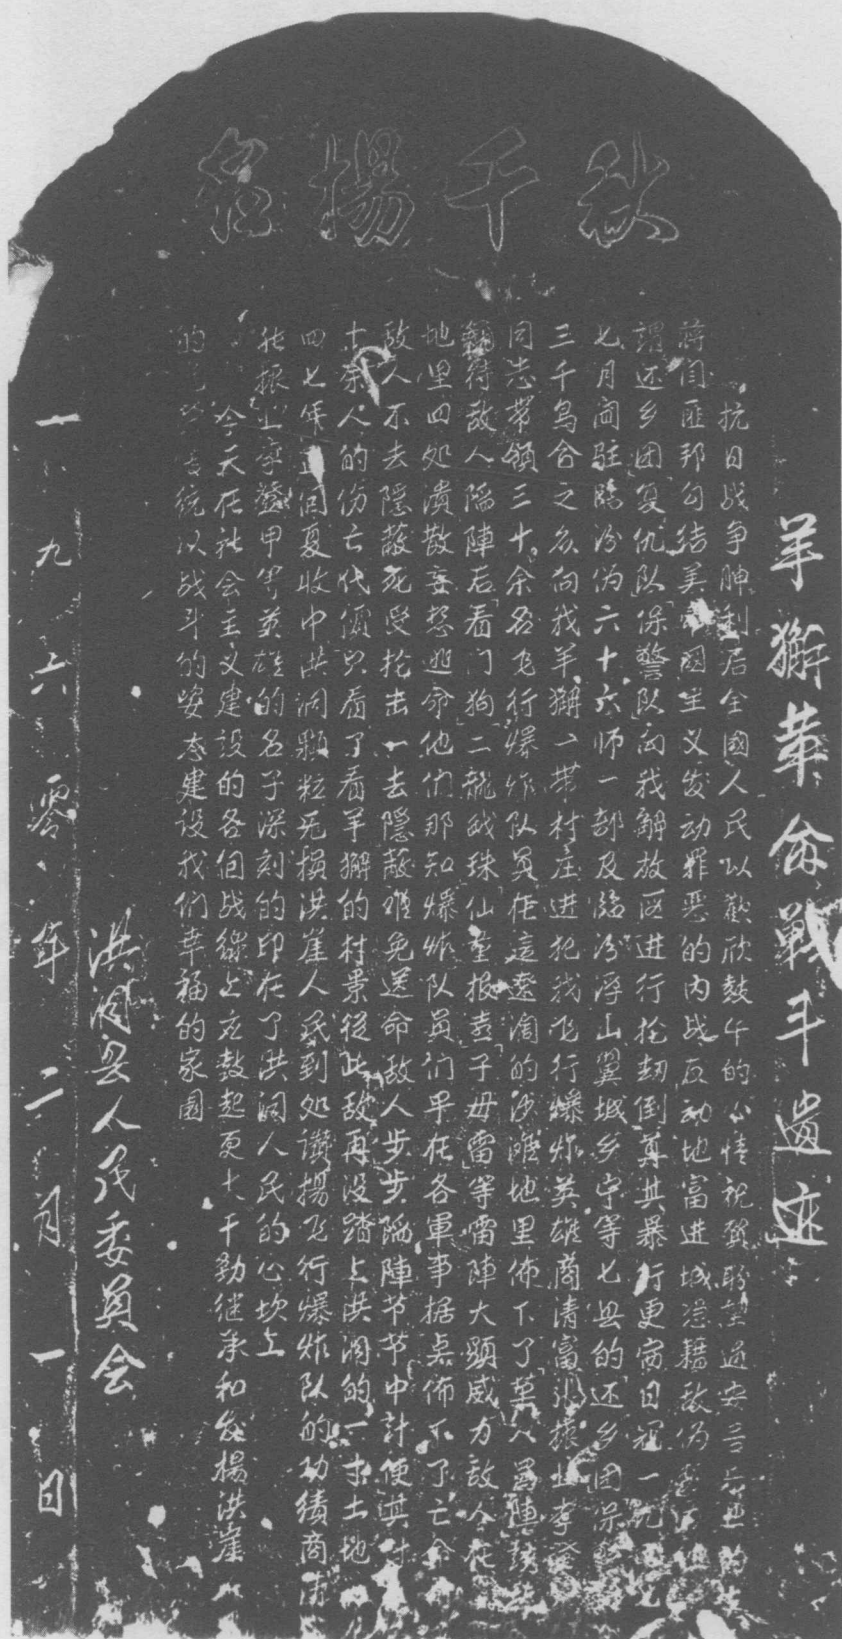 名揚千秋
羊獬革命戰斗遗迹
抗日战争胜利后全國人民以歡欣鼓午的心情祝贺盼望过安居乐业的生
蒋閆匪邦勾结美帝國主义发动罪恶的内战反动地富进城凭藉敌伪
謂还乡团复仇队保警队向我解放区进行抢劫倒算其暴行更窮日冠一九四七
七月間駐臨汾伪六十六师一部及臨汾浮山翼城乡宁等七县的还乡团保警
三千鸟合之众向我羊獬一带村庄进犯我飞行爆炸英雄商清富張振山李登
同志带領三十余名飞行爆炸队員在這遼阔的沙滩地里佈下了草人為陣
敌人陷陣后看门狗二龍戏珠仙童报壺子母雷等雷陣大顯威力敌人在
地里四处潰散妄想逃命他们那知爆炸队員们早在各軍事据点佈下了亡命
敌人不去隱蔽死受抢击一去隱蔽难免送命敌人步步陷陣节节中計使其付
十余人的伤亡代價只看了看羊獬的村景從此敌再没踏上洪洞的一寸土地
四七年 囘夏收中洪洞顆粒无損洪崖人民到处讚揚飞行爆炸队的功績商清
振山李登甲等英雄的名子深刻的印在了洪洞人民的心坎上
今天在社会主义建設的各個战線上应鼓起更大干勁继承和发揚洪崖
的 传统以战斗的姿态建设我们幸福的家园
洪洞县人民委員会
一九六零年二月一日